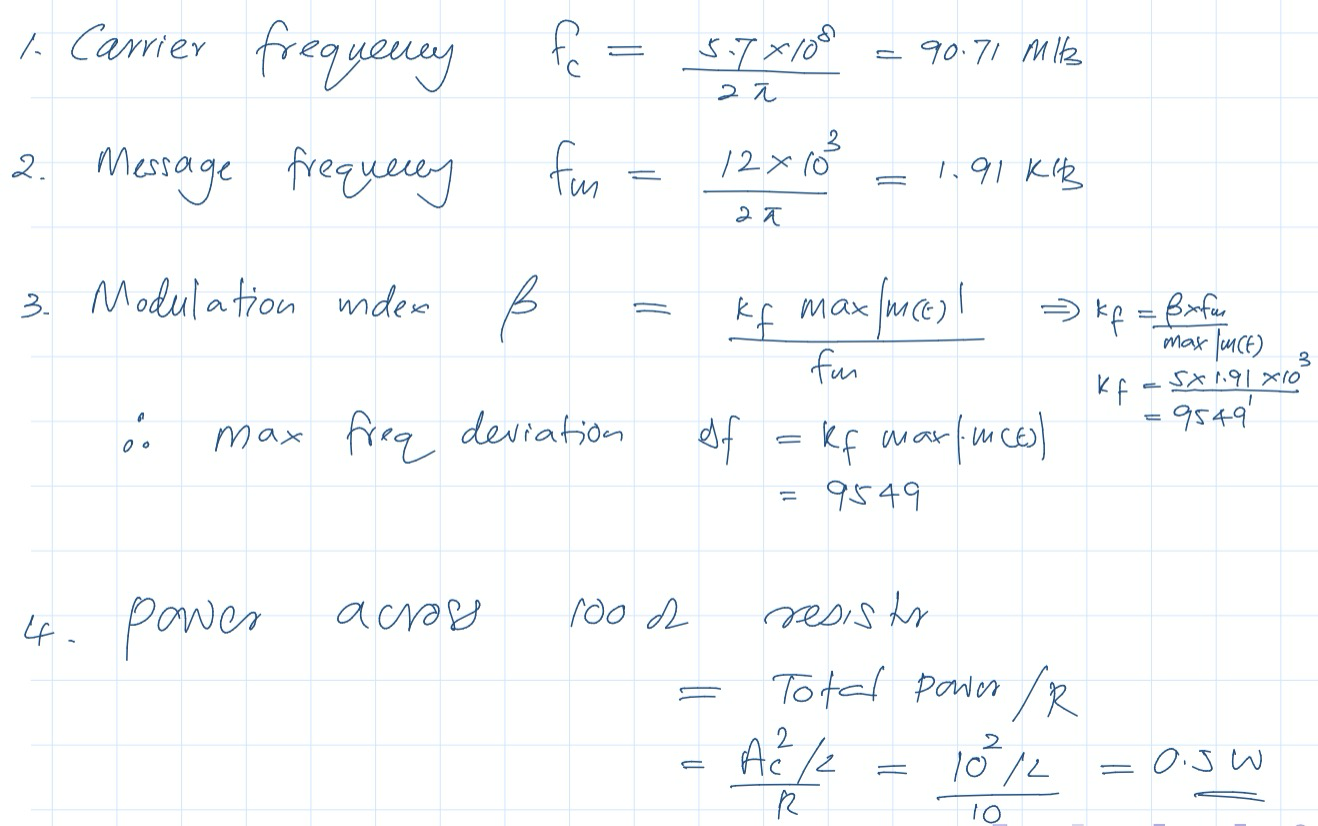 1. Carrier frequency fc = 5.7 × 10^8 / 2π = 90.71 MHz
2. Message frequency fm = 12 × 10^3 / 2π = 1.91 KHz
3. Modulation index β = kf max|m(t)| / fm ⇒ kf = β×fm / max|m(t)
kf = 5 × 1.91 × 10^3
= 9549
∴ max freq deviation Δf = kf max|m(t)|
= 9549
4. Power across 100 Ω resistr
= Total power / R
= Ac^2/2 / R = 10^2/2 / 10 = 0.5 W